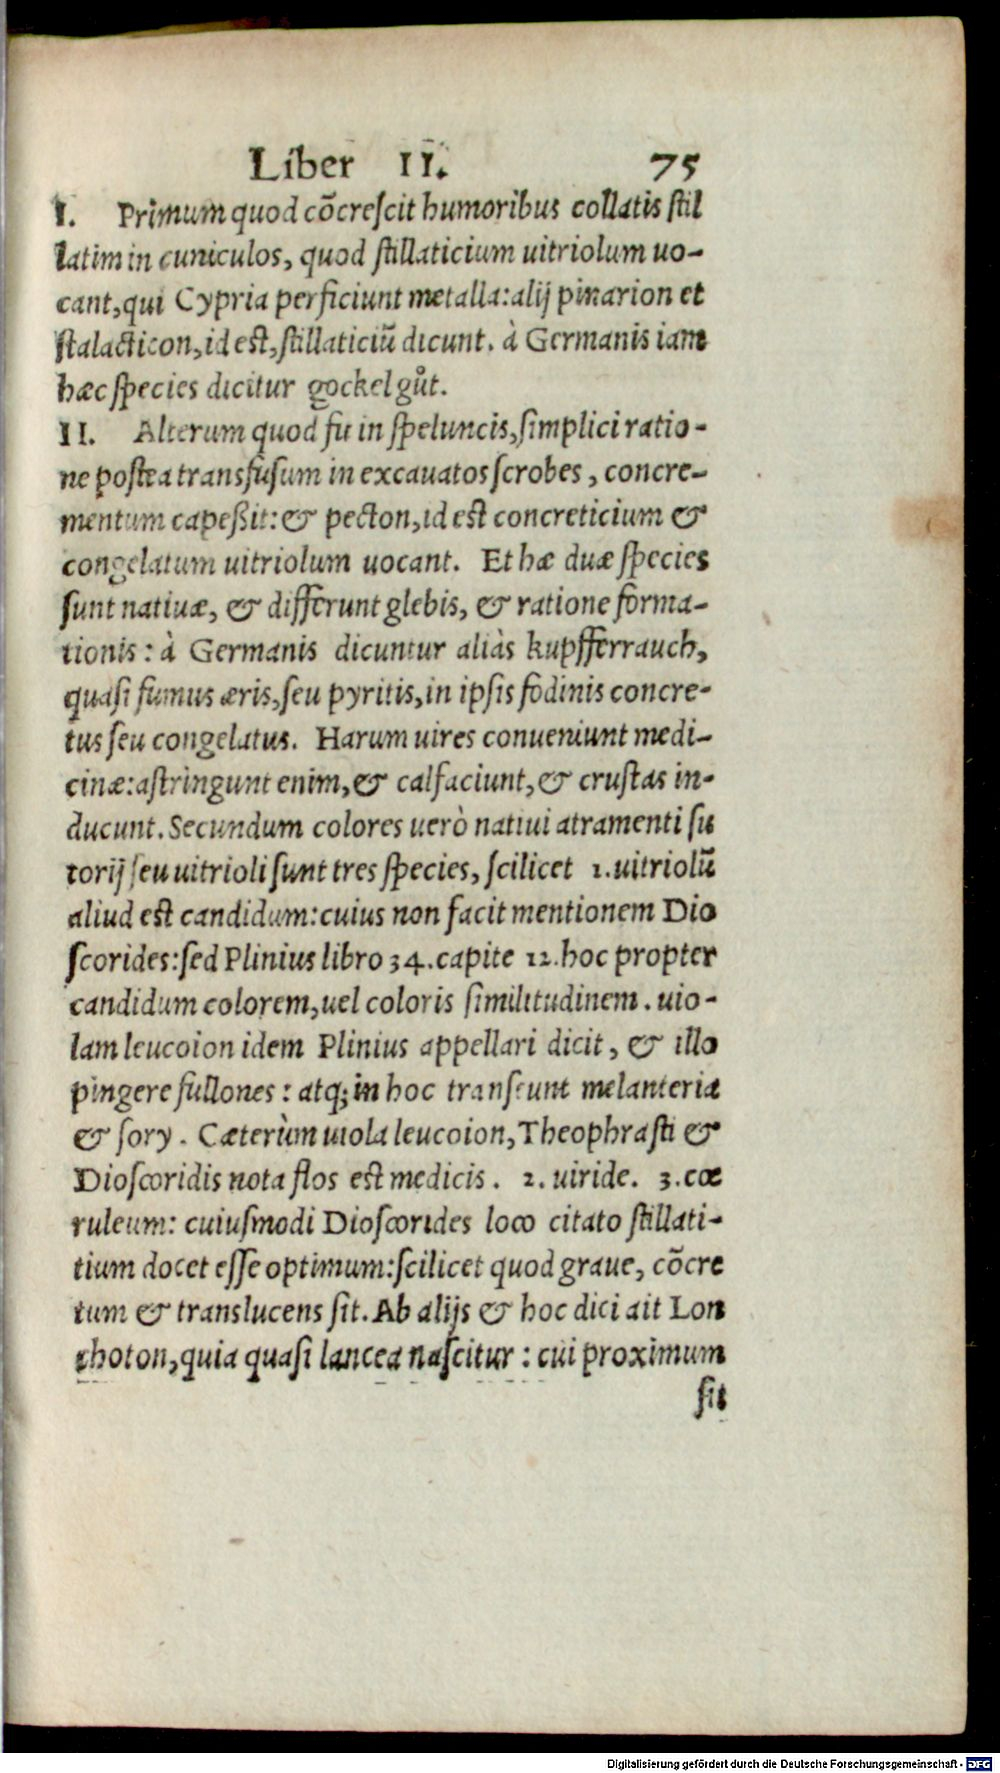 Liber II. 75
I. Primum quod cõcreſcit humoribus collatis ſtil
latim in cuniculos, quod ſtillaticium uitriolum uo-
cant, qui Cypria perficiunt metalla: alij pinarion et
ſtalacticon, id eſt, ſtillaticiũ dicunt. à Germanis iam
hæc ſpecies dicitur gockelgůt.
II. Alterum quod fit in ſpeluncis, ſimplici ratio-
ne poſtea transfuſum in excauatos ſcrobes, concre-
mentum capeßit: & pecton, id eſt concreticium &
congelatum uitriolum uocant. Et hæ duæ ſpecies
ſunt natiuæ, & differunt glebis, & ratione forma-
tionis: à Germanis dicuntur aliàs kupfferrauch,
quaſi fumus æris, ſeu pyritis, in ipſis fodinis concre-
tus ſeu congelatus. Harum uires conueniunt medi-
cinæ: aſtringunt enim, & calfaciunt, & cruſtas in-
ducunt. Secundum colores uerò natiui atramenti ſu
torij ſeu uitrioli ſunt tres ſpecies, ſcilicet 1. uitriolũ
aliud eſt candidum: cuius non facit mentionem Dio
ſcorides: ſed Plinius libro 34. capite 12. hoc propter
candidum colorem, uel coloris ſimilitudinem. uio-
lam leucoion idem Plinius appellari dicit, & illo
pingere fullones: atq; in hoc tranſeunt melanteria
& ſory. Cæterùm uiola leucoion, Theophraſti &
Dioſcoridis nota flos eſt medicis. 2. uiride. 3. cœ
ruleum: cuiuſmodi Dioſcorides loco citato ſtillati-
tium docet eſſe optimum: ſcilicet quod graue, cõcre
tum & translucens ſit. Ab alijs & hoc dici ait Lon
choton, quia quaſi lancea naſcitur: cui proximum
ſit
Digitalisierung gefördert durch die Deutsche Forschungsgemeinschaft - DFG